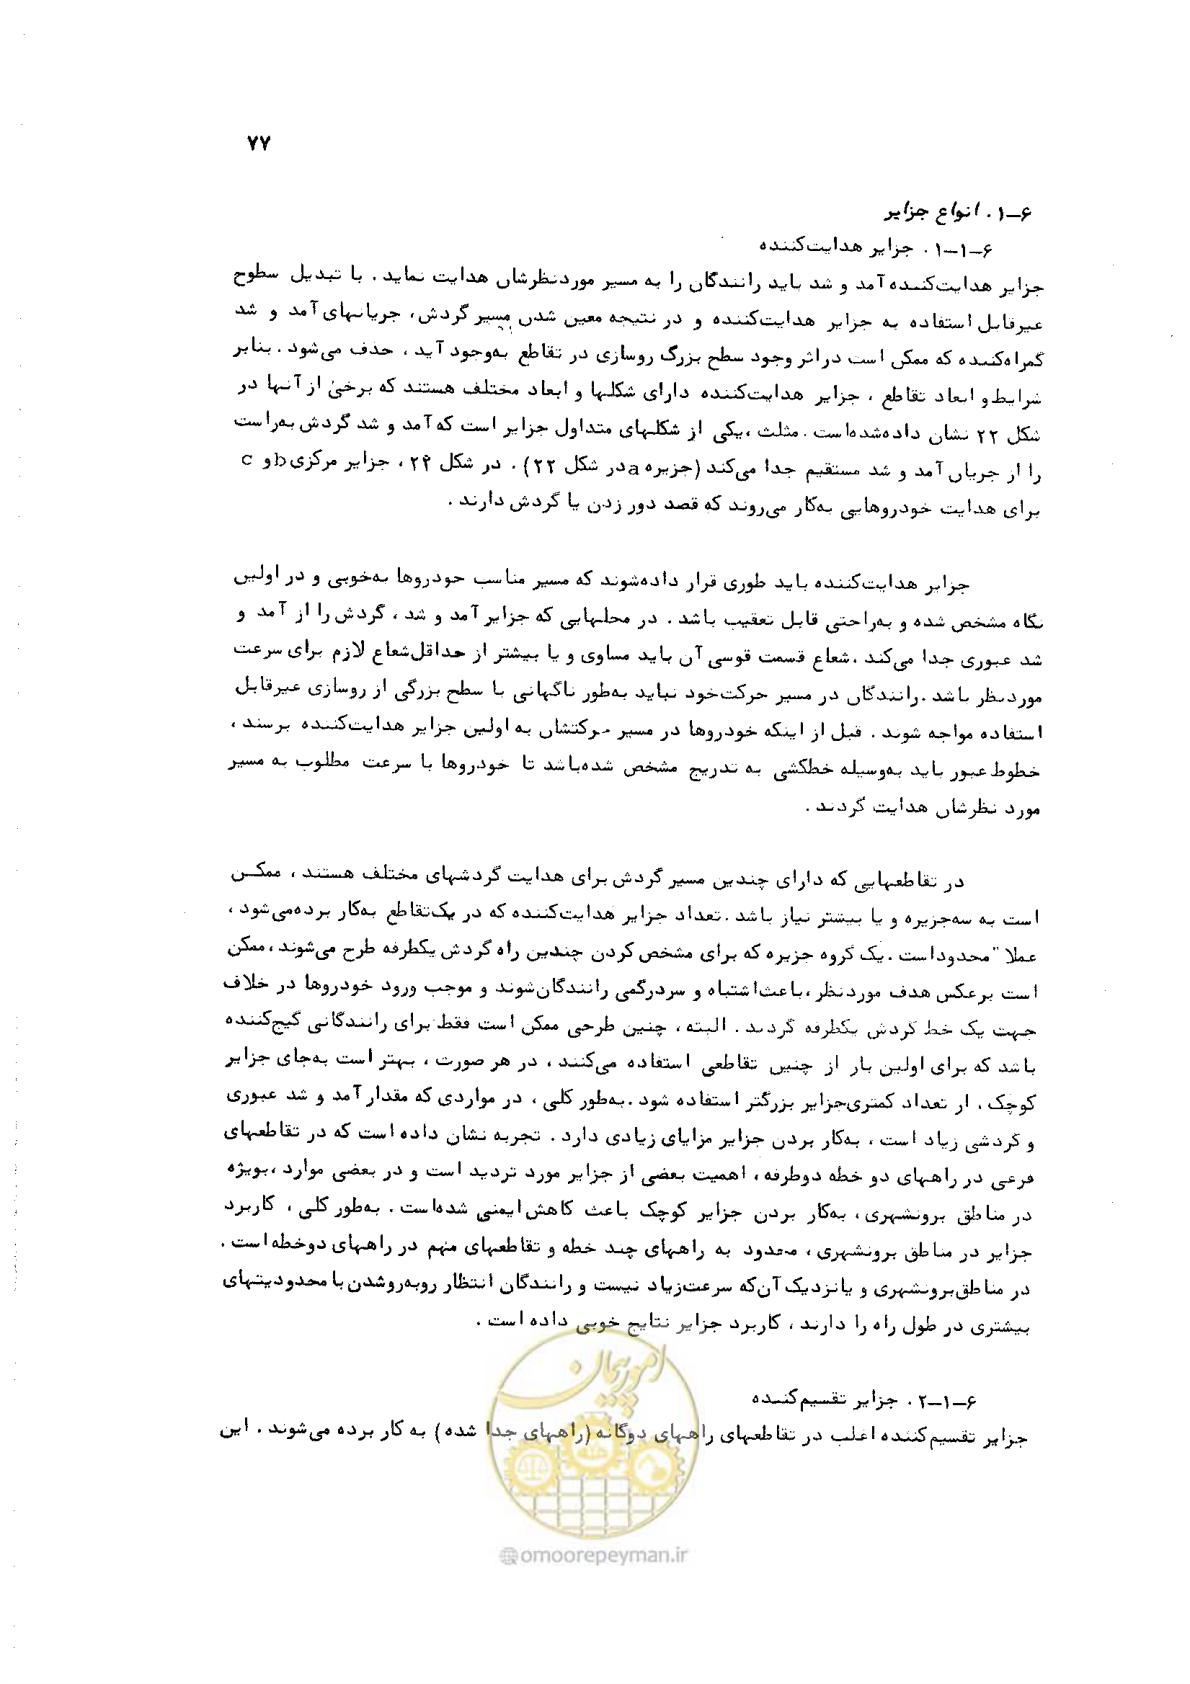 ۷۷
۶-۱. انواع جزایر
۶-۱-۱. جزایر هدایت‌کننده
جزایر هدایت‌کننده آمد و شد باید رانندگان را به مسیر موردنظرشان هدایت نماید. با تبدیل سطوح
غیرقابل استفاده به جزایر هدایت‌کننده و در نتیجه معین شدن مسیر گردش، جریانهای آمد و شد
گمراه‌کننده که ممکن است دراثر وجود سطح بزرگ روسازی در تقاطع به‌وجود آید، حذف می‌شود. بنابر
شرایط و ابعاد تقاطع، جزایر هدایت‌کننده دارای شکلها و ابعاد مختلف هستند که برخی از آنها در
شکل ۲۲ نشان داده‌شده‌است. مثلث، یکی از شکلهای متداول جزایر است که آمد و شد گردش به‌راست
را از جریان آمد و شد مستقیم جدا می‌کند (جزیره a در شکل ۲۲). در شکل ۲۲، جزایر مرکزی b و c
برای هدایت خودروهایی به‌کار می‌روند که قصد دور زدن یا گردش دارند.
جزایر هدایت‌کننده باید طوری قرار داده‌شوند که مسیر مناسب خودروها به‌خوبی و در اولین
نگاه مشخص شده و به‌راحتی قابل تعقیب باشد. در محلهایی که جزایر آمد و شد، گردش را از آمد و
شد عبوری جدا می‌کند، شعاع قسمت قوسی آن باید مساوی و یا بیشتر از حداقل شعاع لازم برای سرعت
موردنظر باشد. رانندگان در مسیر حرکت خود نباید به‌طور ناگهانی با سطح بزرگی از روسازی غیرقابل
استفاده مواجه شوند. قبل از اینکه خودروها در مسیر حرکتشان به اولین جزایر هدایت‌کننده برسند،
خطوط عبور باید به‌وسیله خطکشی به تدریج مشخص شده‌باشد تا خودروها با سرعت مطلوب به مسیر
مورد نظرشان هدایت گردند.
در تقاطعهایی که دارای چندین مسیر گردش برای هدایت گردشهای مختلف هستند، ممکن
است به سه‌جزیره و یا بیشتر نیاز باشد. تعداد جزایر هدایت‌کننده که در یک‌تقاطع به‌کار برده‌می‌شود،
عملا" محدوداست. یک گروه جزیره که برای مشخص کردن چندین راه گردش یکطرفه طرح می‌شوند، ممکن
است برعکس هدف موردنظر، باعث اشتباه و سردرگمی رانندگان شوند و موجب ورود خودروها در خلاف
جهت یک خط گردش یکطرفه گردند. البته، چنین طرحی ممکن است فقط برای رانندگانی گیج‌کننده
باشد که برای اولین بار از چنین تقاطعی استفاده می‌کنند، در هر صورت، بهتر است به‌جای جزایر
کوچک، از تعداد کمتری جزایر بزرگتر استفاده شود. به‌طور کلی، در مواردی که مقدار آمد و شد عبوری
و گردشی زیاد است، به‌کار بردن جزایر مزایای زیادی دارد. تجربه نشان داده است که در تقاطعهای
فرعی در راههای دو خطه دوطرفه، اهمیت بعضی از جزایر مورد تردید است و در بعضی موارد، بویژه
در مناطق برونشهری، به‌کار بردن جزایر کوچک باعث کاهش ایمنی شده‌است. به‌طور کلی، کاربرد
جزایر در مناطق برونشهری، محدود به راههای چند خطه و تقاطعهای مهم در راههای دوخطه است.
در مناطق برونشهری و یا نزدیک آن‌که سرعت‌زیاد نیست و رانندگان انتظار روبه‌روشدن با محدودیتهای
بیشتری در طول راه را دارند، کاربرد جزایر نتایج خوبی داده است.
۶-۱-۲. جزایر تقسیم‌کننده
جزایر تقسیم‌کننده اغلب در تقاطعهای راههای دوگانه (راههای جدا شده) به کار برده می‌شوند. این
امور پیمان
@omoorepeyman.ir